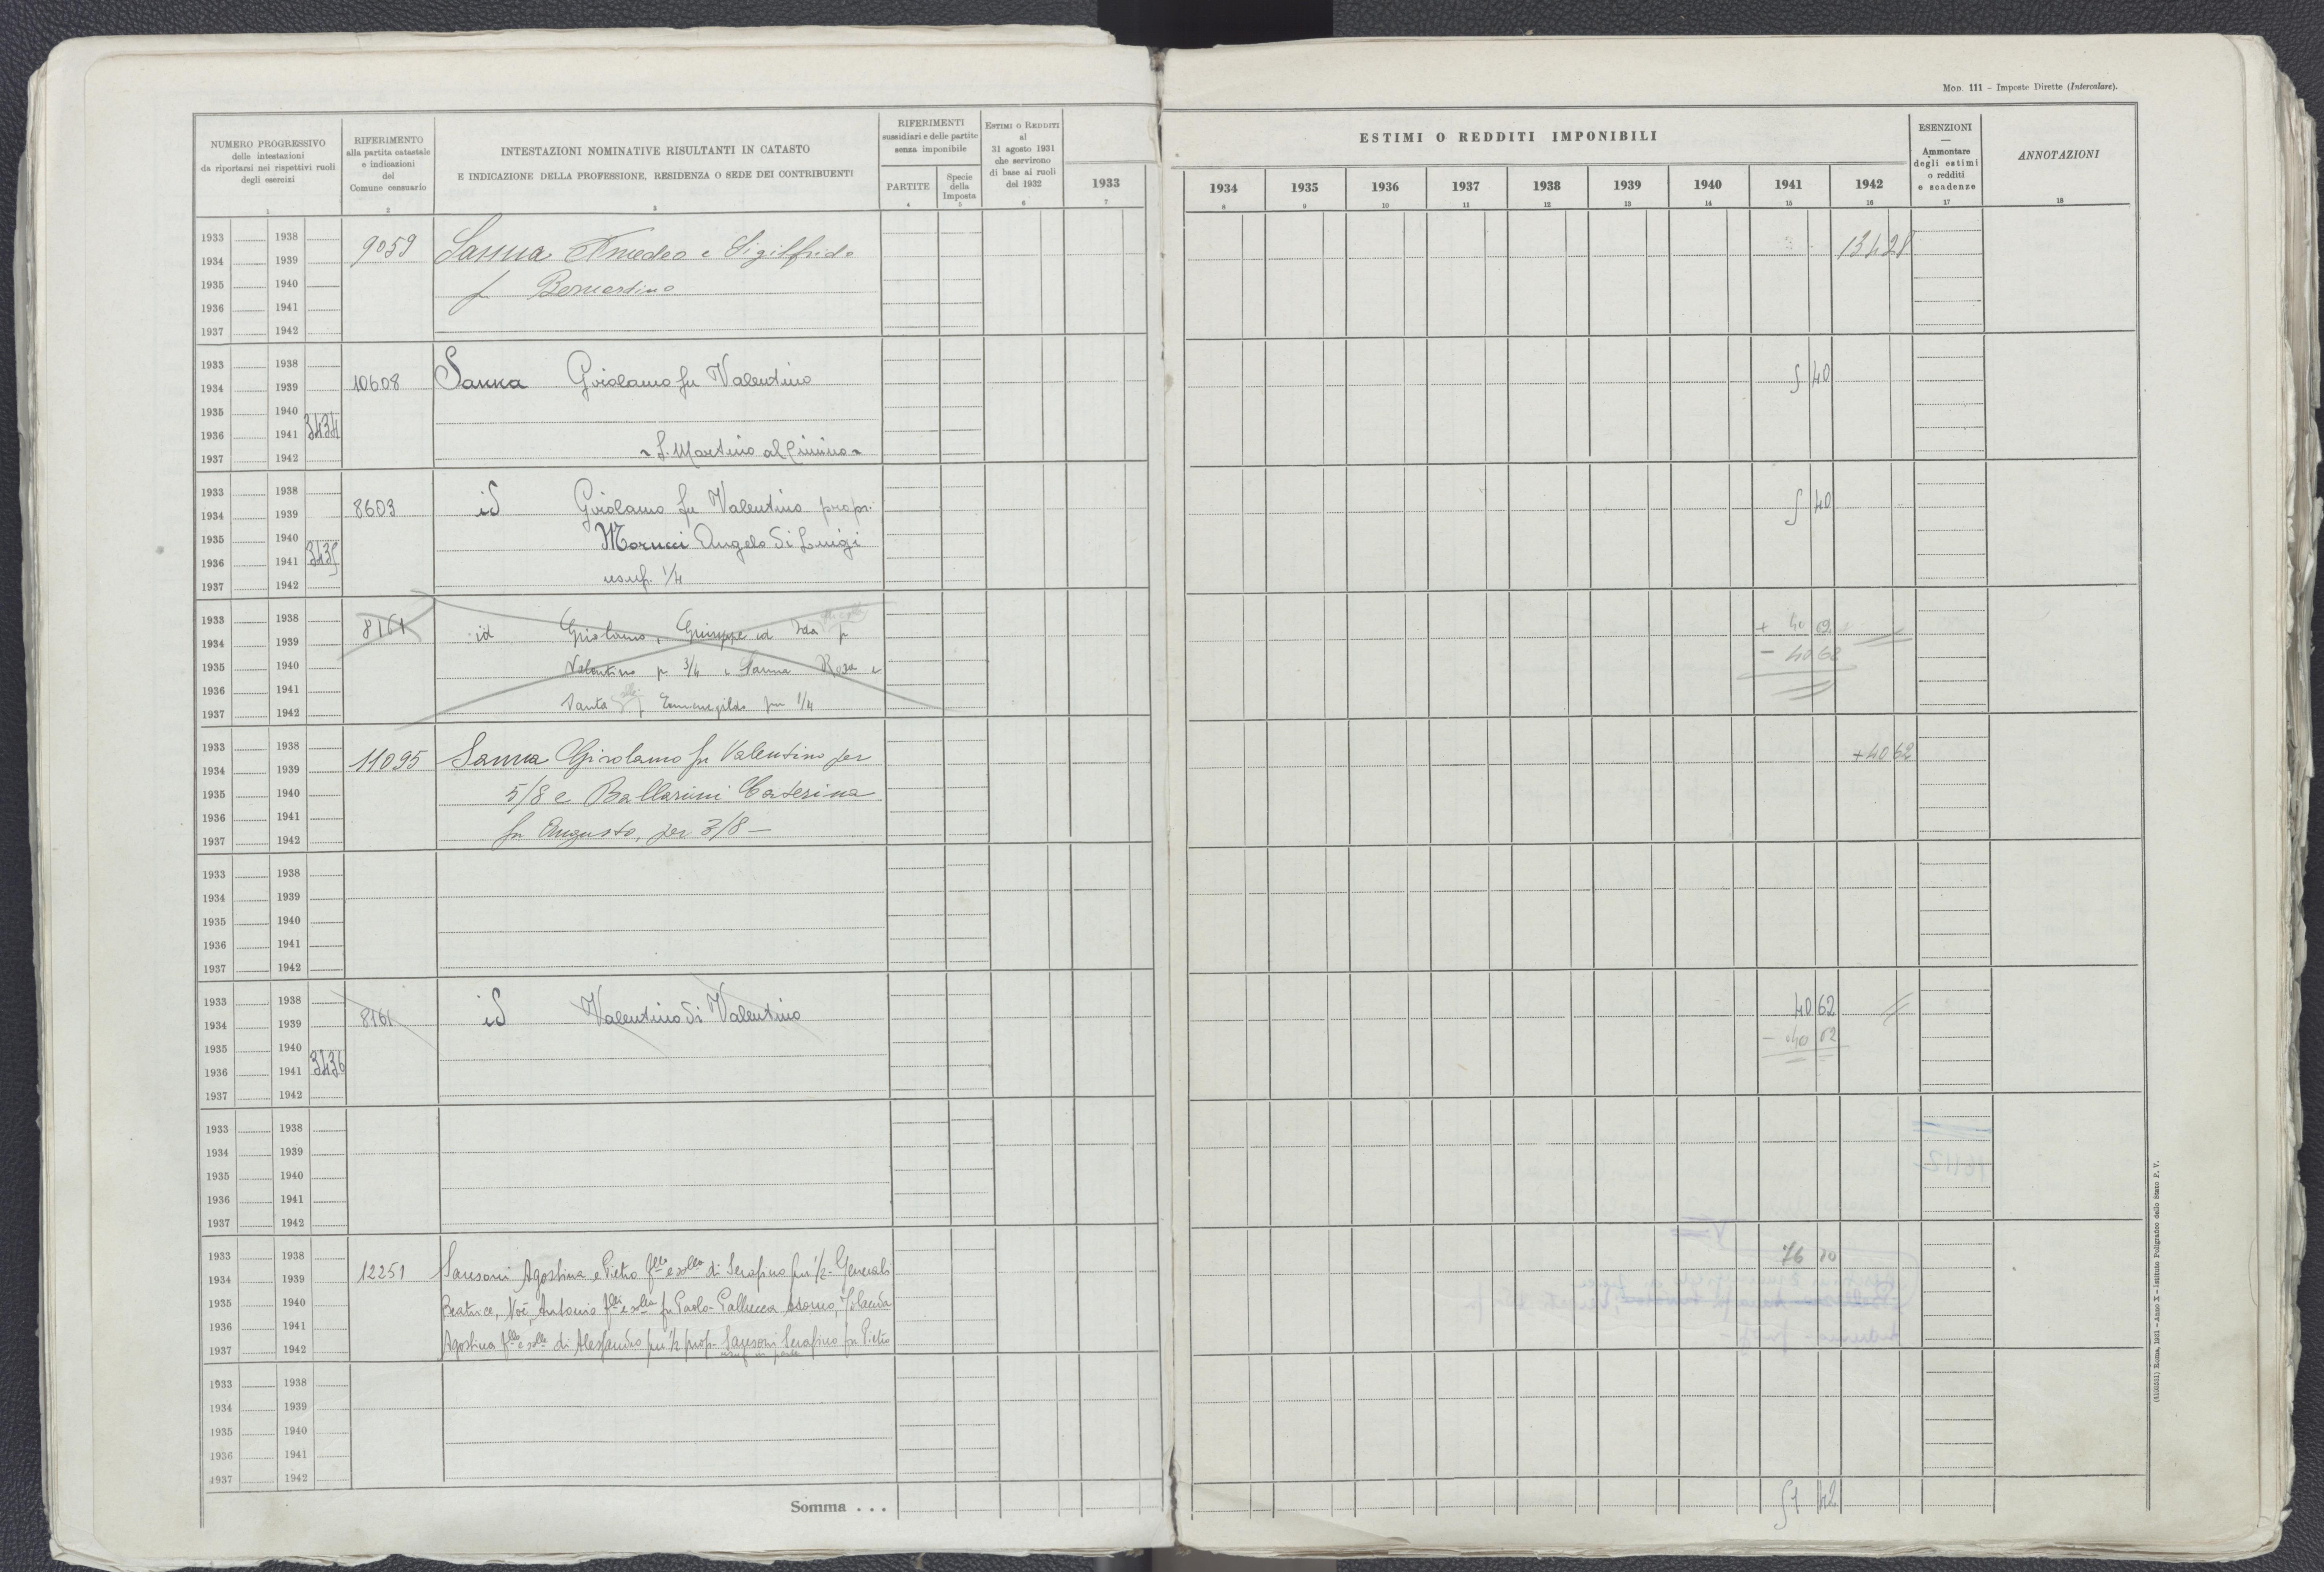 Mod. 111 - Imposte Dirette (Intercalare).
NUMERO PROGRESSIVO
delle intestazioni
da riportarsi nei rispettivi ruoli
degli esercizi
1
RIFERIMENTO
alla partita catastale
e indicazioni
del
Comune censuario
2
INTESTAZIONI NOMINATIVE RISULTANTI IN CATASTO
E INDICAZIONE DELLA PROFESSIONE, RESIDENZA O SEDE DEI CONTRIBUENTI
3
RIFERIMENTI
sussidiari e delle partite
senza imponibile
PARTITE
4
Specie
della
Imposta
5
ESTIMI O REDDITI
al
31 agosto 1931
che servirono
di base ai ruoli
del 1932
6
1933
7
ESTIMI O REDDITI IMPONIBILI
1934 1935 1936 1937 1938 1939 1940 1941 1942
8 9 10 11 12 13 14 15 16
ESENZIONI
Ammontare
degli estimi
o redditi
e scadenze
17
ANNOTAZIONI
18
1933 1938
1934 1939
1935 1940
1936 1941
1937 1942
9059
Sanna Amedeo e Sigilfrido
fu Bernardino
134 28
1933 1938
1934 1939
1935 1940
1936 1941 3434
1937 1942
10608
Sanna Girolamo fu Valentino
S. Martino al Cimino
5 40
1933 1938
1934 1939
1935 1940
1936 1941 3435
1937 1942
8603
id Girolamo fu Valentino propr.
Morucci Angelo di Luigi
usuf. 1/4
5 40
1933 1938
1934 1939
1935 1940
1936 1941
1937 1942
8161
id Girolamo, Giuseppe ed Ida fu
Valentino p 3/4 e Sanna Rosa e
Santa fu Ermenegildo per 1/4
+ 40 62
- 40 62
1933 1938
1934 1939
1935 1940
1936 1941
1937 1942
11095
Sanna Girolamo fu Valentino per
5/8 e Ballarini Caterina
fu Augusto, per 3/8 —
+ 40 62
1933 1938
1934 1939
1935 1940
1936 1941
1937 1942
1933 1938
1934 1939
1935 1940
1936 1941 3436
1937 1942
8161
id Valentino di Valentino
40 62
- 40 62
1933 1938
1934 1939
1935 1940
1936 1941
1937 1942
1933 1938
1934 1939
1935 1940
1936 1941
1937 1942
12251
Sansoni Agostina e Pietro flli e slla di Serafino per 1/2 - Generali
Beatrice, Noè, Antonio flli e slla fu Paolo - Pallucca Adorno, Iolanda
Agostina fllo e slle di Alessandro per 1/2 prop - Sansoni Serafino fu Pietro
usuf in parte
76 20
1933 1938
1934 1939
1935 1940
1936 1941
1937 1942
Somma . . .
51 42
(4192551) Roma, 1931 - Anno X - Istituto Poligrafico dello Stato P. V.